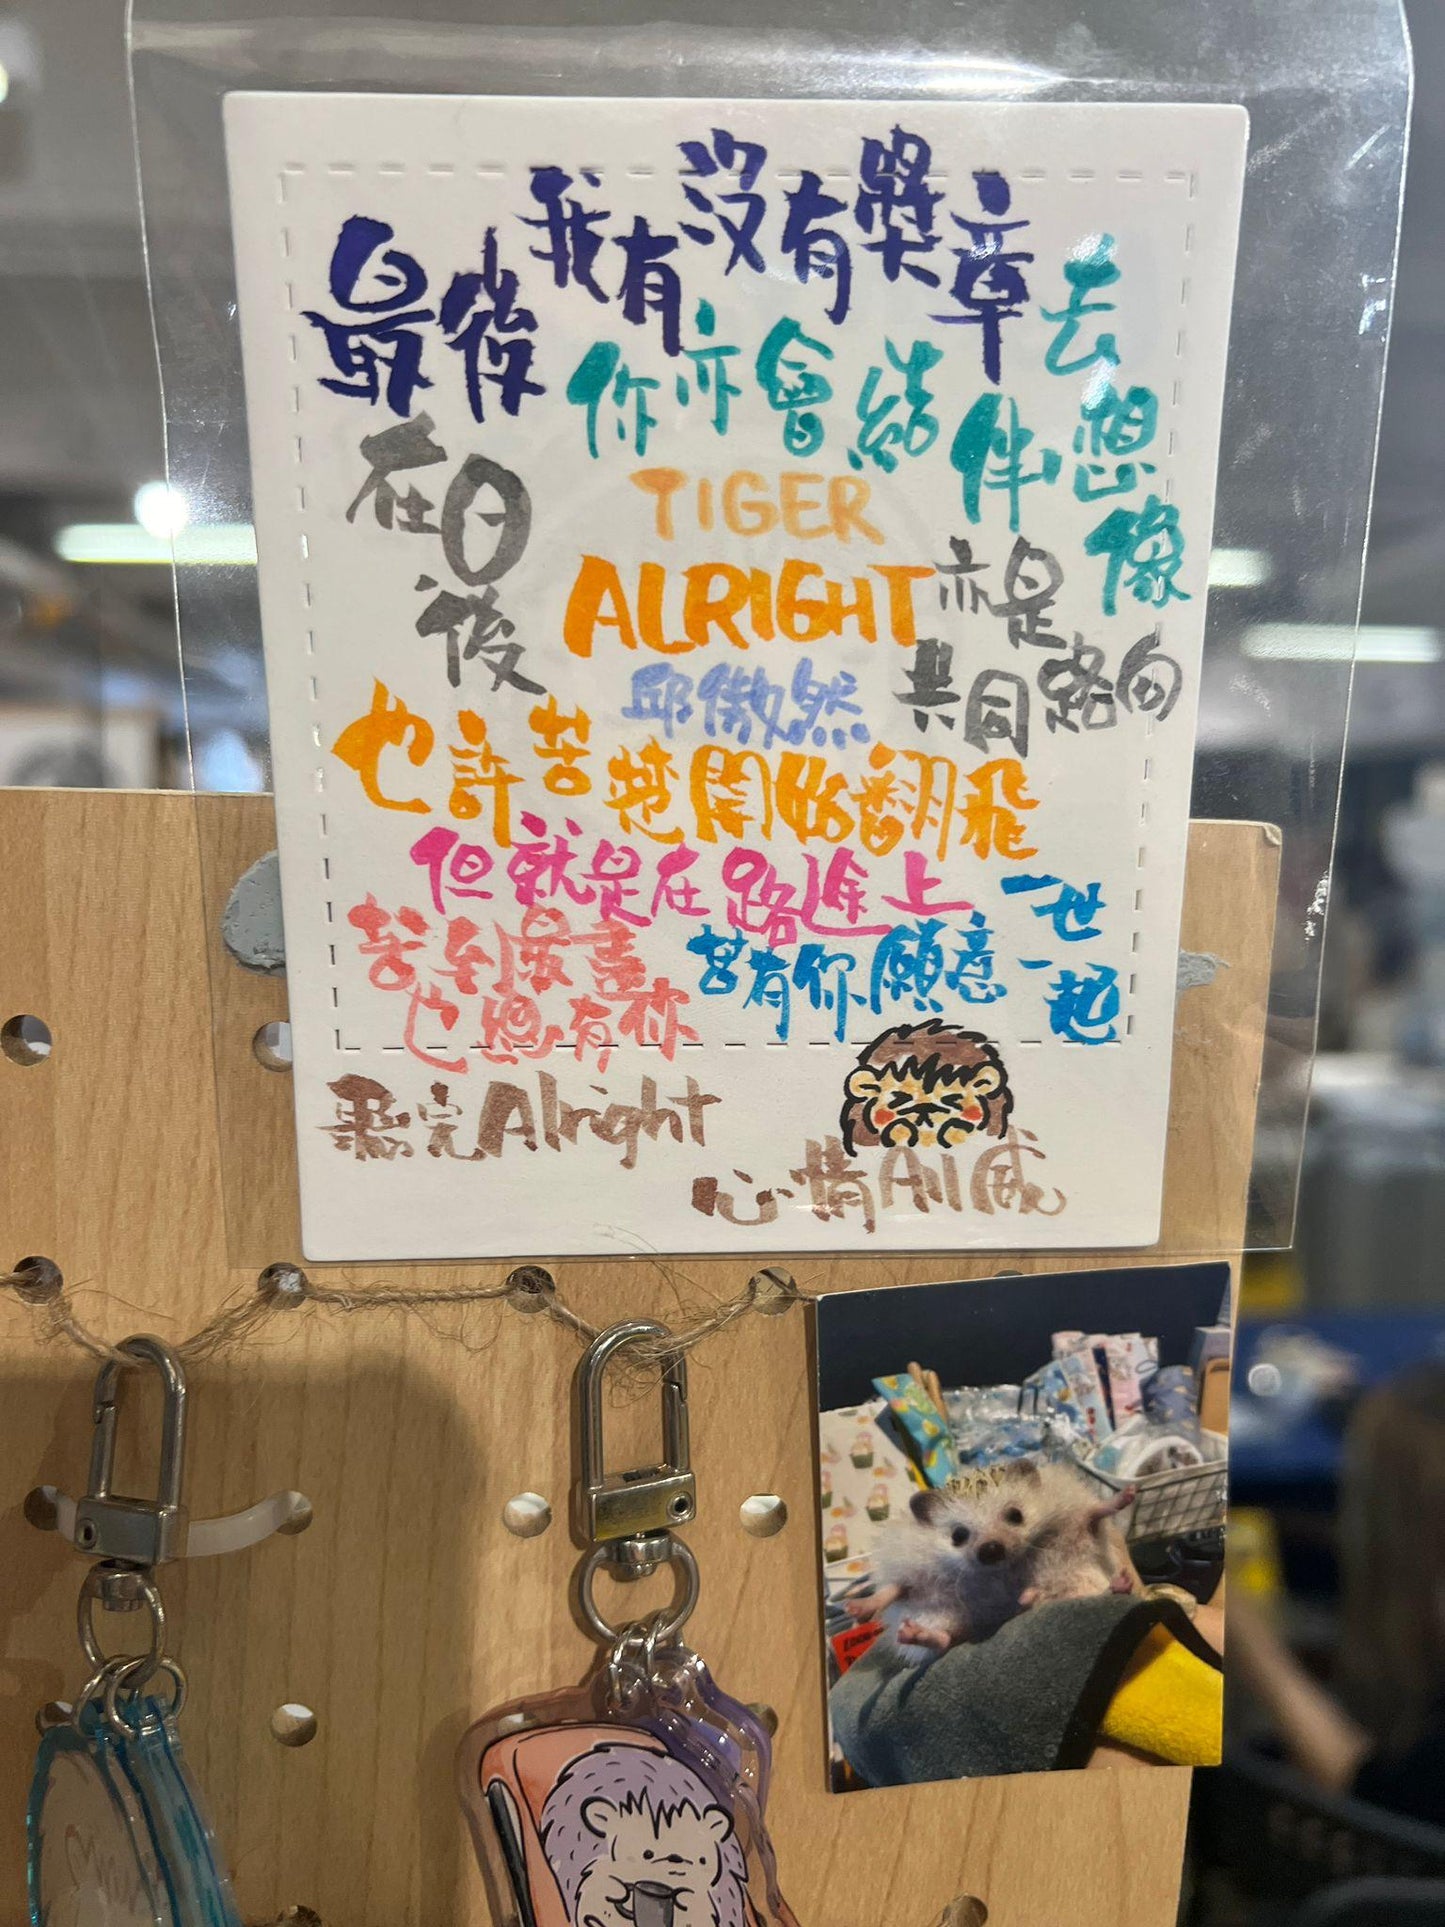 最後我有沒有獎章
你亦會結伴去想像
在日後
亦是共同路向
TIGER
ALRIGHT
邱傲然
也許苦楚開始翻飛
但就是在路途上
苦到最盡也想有祢
若有你願意一世一起
聽完Alright
心情All威